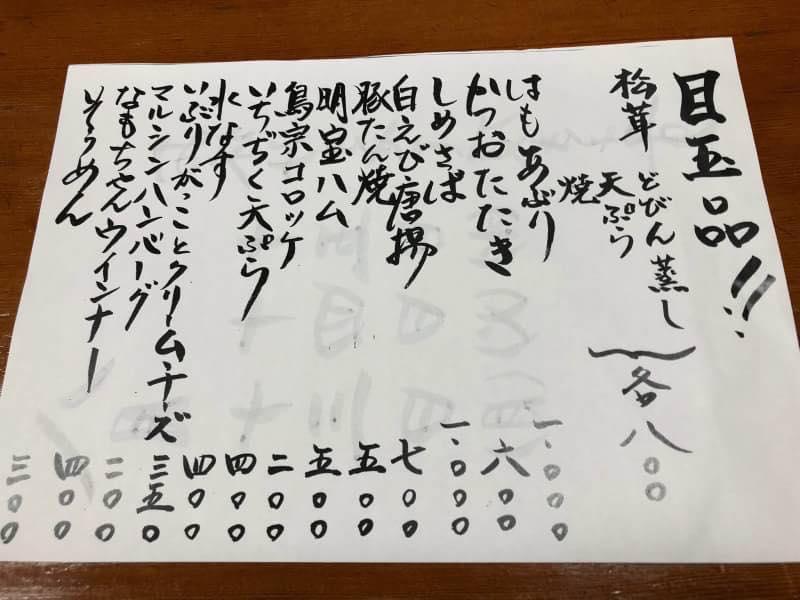 目玉品!!
松茸 どびん蒸し
天ぷら
焼
各八〇〇
はもあぶり 一、〇〇〇
かつおたたき 六〇〇
しめさば 一、〇〇〇
白えび唐揚 七〇〇
豚たん焼 五〇〇
明宝ハム 五〇〇
鳥宗コロッケ 二〇〇
いちぢく天ぷら 四〇〇
水なす 四〇〇
いぶりがっことクリームチーズ 三五〇
マルシンハンバーグ 二〇〇
なもちゃんウインナー 四〇〇
そうめん 三〇〇